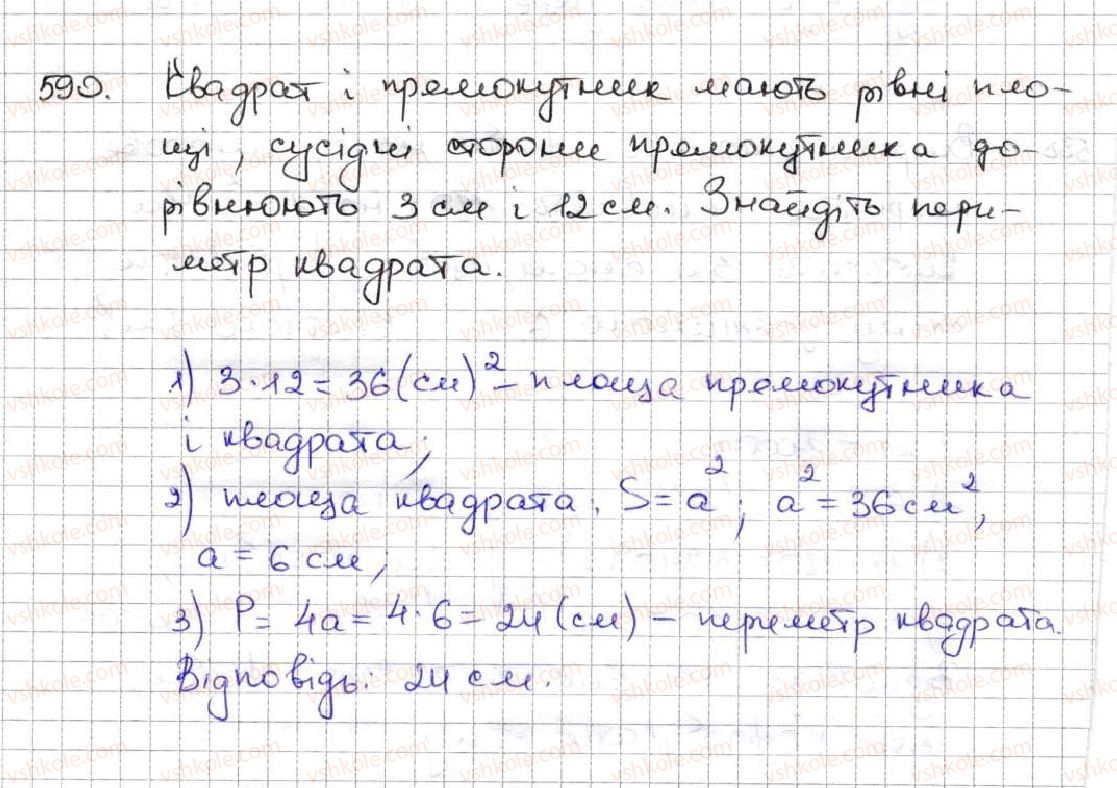 590. Квадрат і прямокутник мають рівні пло-
щі, сусідні сторони прямокутника до-
рівнюють 3 см і 12 см. Знайдіть пери-
метр квадрата.
1) 3·12 = 36 (см)² – площа прямокутника
і квадрата;
2) площа квадрата: S = a²; a² = 36 см²,
a = 6 см;
3) P = 4a = 4·6 = 24 (см) – периметр квадрата.
Відповідь: 24 см.